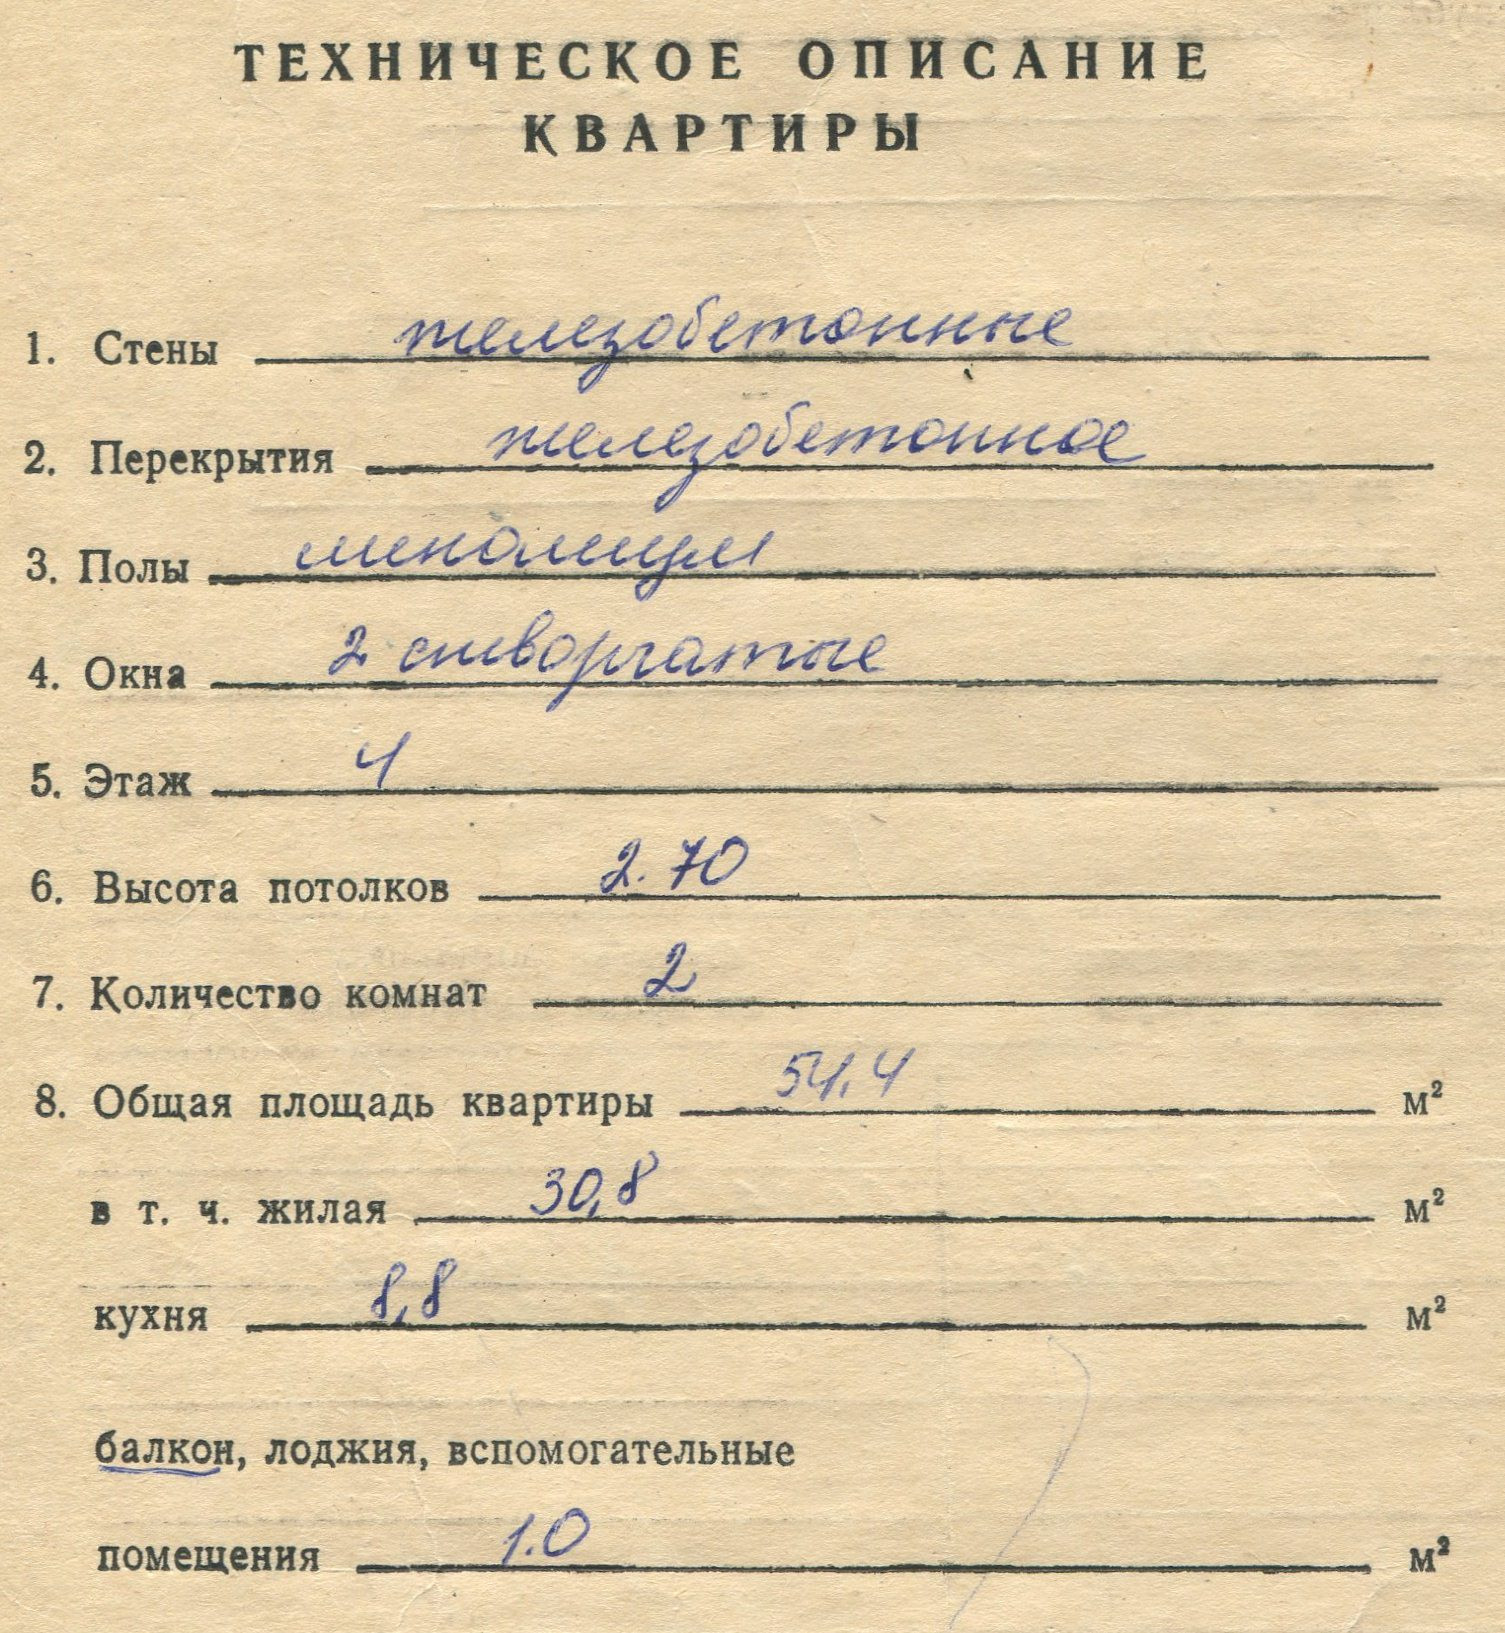 ТЕХНИЧЕСКОЕ ОПИСАНИЕ
КВАРТИРЫ
1. Стены железобетонные
2. Перекрытия железобетонное
3. Полы линолиум
4. Окна 2 створчатые
5. Этаж 4
6. Высота потолков 2.70
7. Количество комнат 2
8. Общая площадь квартиры 54,4 м²
в т. ч. жилая 30,8 м²
кухня 8,8 м²
балкон, лоджия, вспомогательные
помещения 1.0 м²